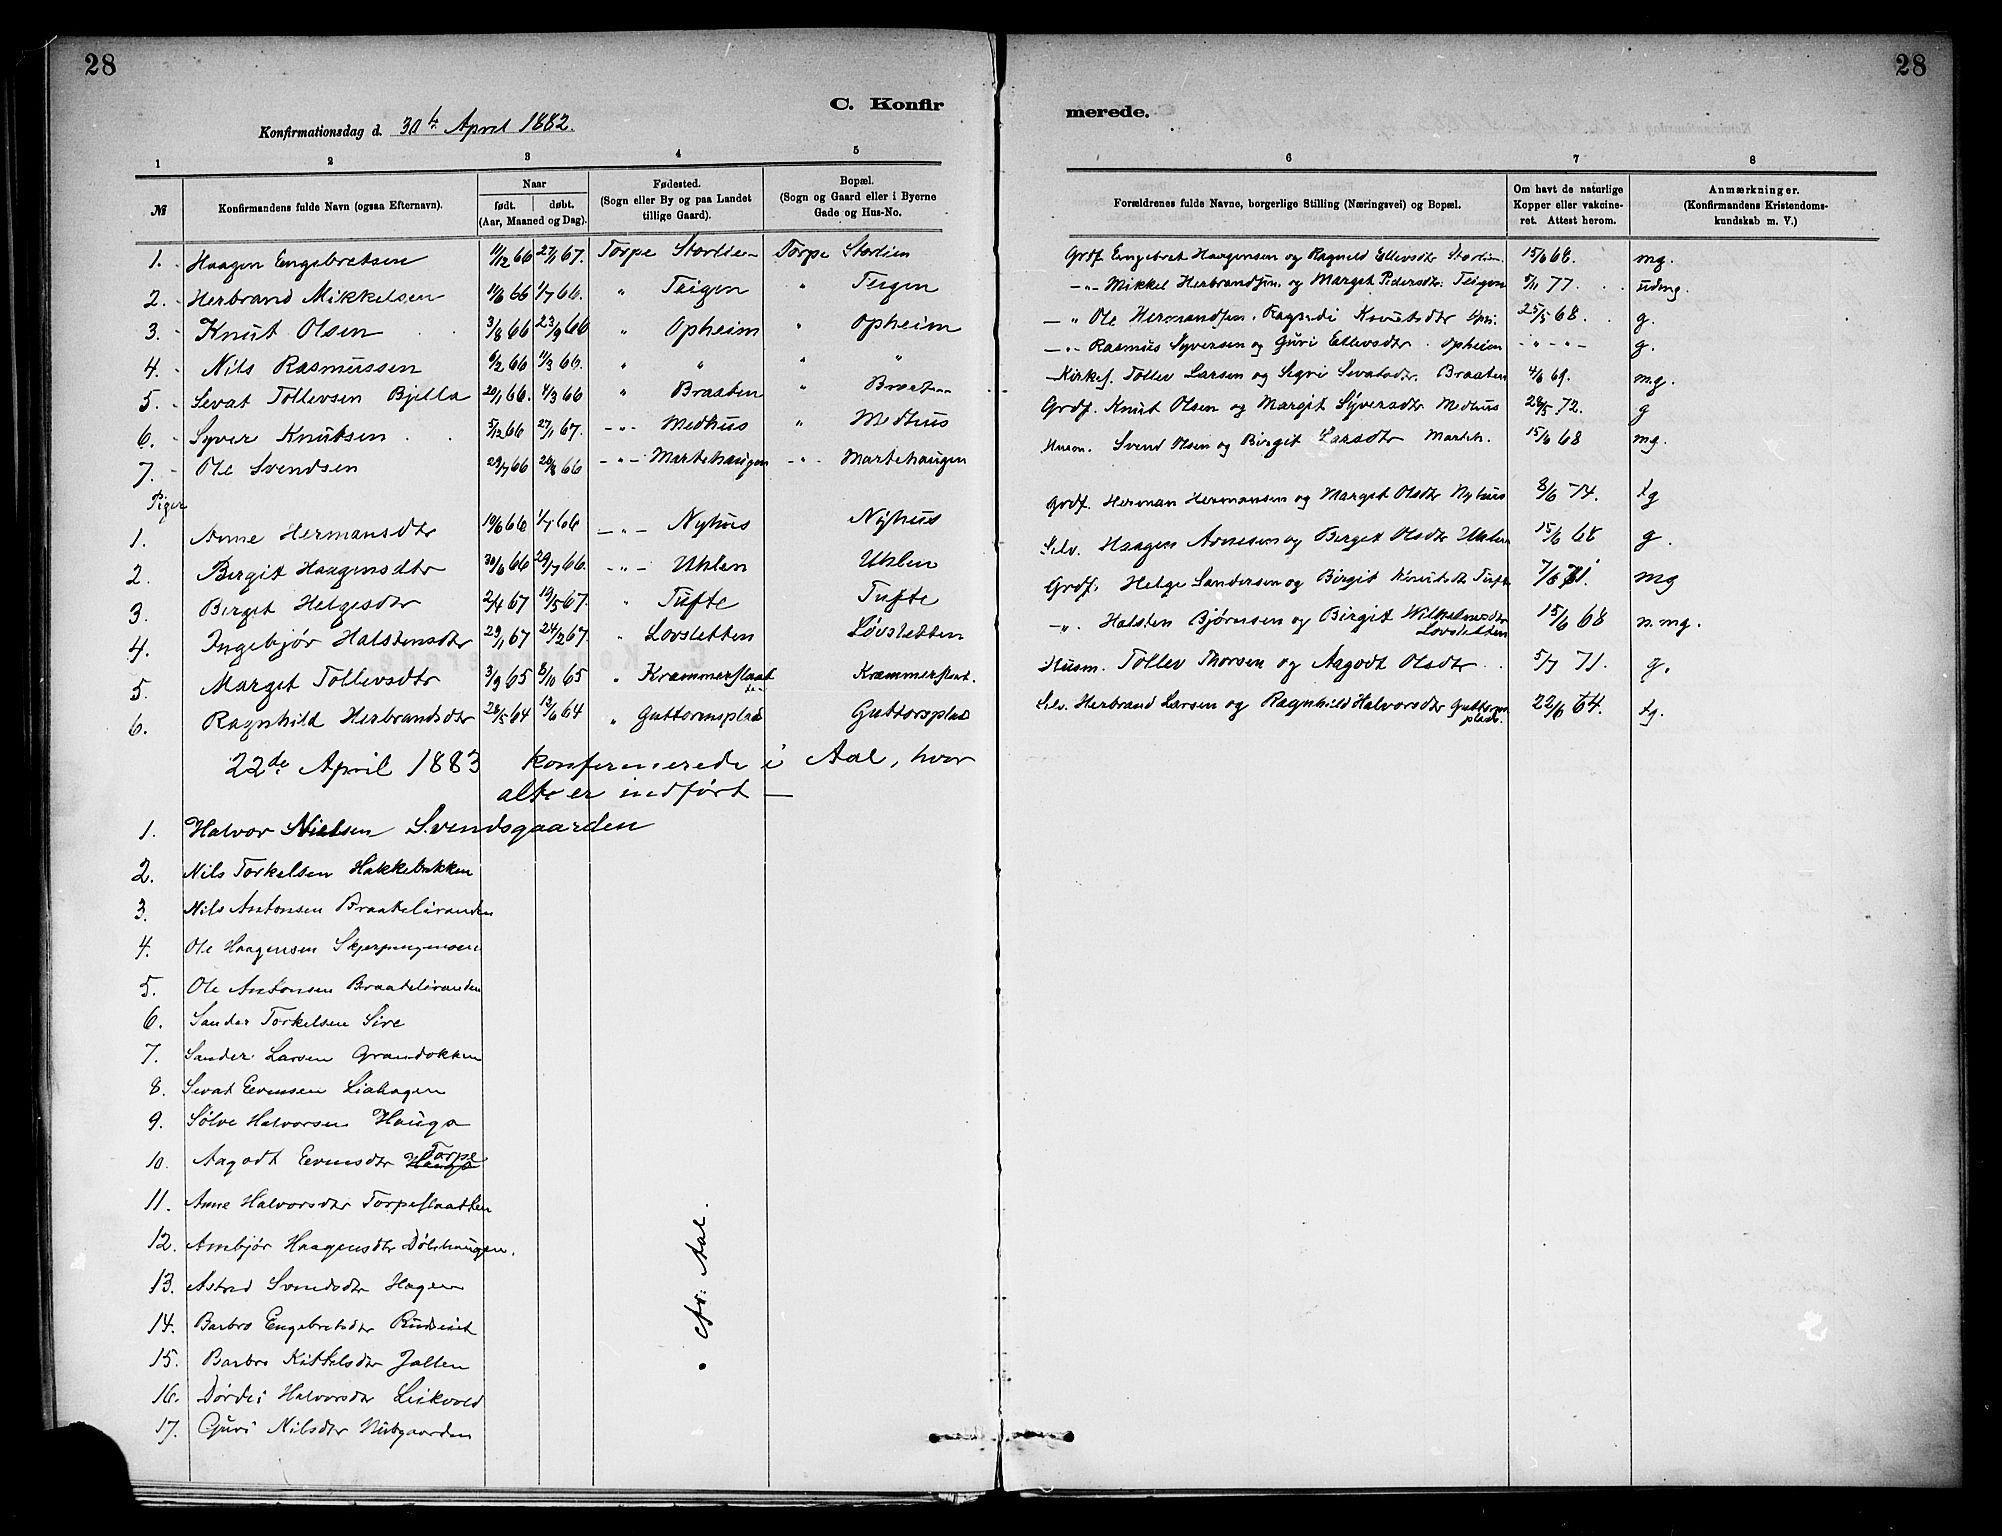 28
28
C. Konfirmerede.
Konfirmationsdag d. 30te April 1882.
1 2 3 4 5 6 7 8
№ Konfirmandens fulde Navn (ogsaa Efternavn). Naar født. døbt. (Aar, Maaned og Dag). Fødested. (Sogn eller By og paa Landet tillige Gaard). Bopæl. (Sogn og Gaard eller i Byerne Gade og Hus-No. Forældrenes fulde Navne, borgerlige Stilling (Næringsvei) og Bopæl. Om havt de naturlige Kopper eller vakcineret. Attest herom. Anmærkninger. (Konfirmandens Kristendomskundskab m. V.)
1. Haagen Engebretsen 11/12 66 27/1 67. Torpe Storlien Torpe Storlien Grdf. Engebret Haagensen og Ragnild Ellevsdtr Storlien 15/6 68. mg.
2. Herbrand Mikkelsen 11/6 66 1/7 66. " Teigen " Teigen -"- Mikkel Herbrandsen og Marget Pedersdtr. Teigen 5/11 77. udmg.
3. Knut Olsen 3/8 66 23/9 66 " Opheim " Opheim -"- Ole Hermandsen. Ragndi Knutsdtr Ophi. 25/5 68. g.
4. Nils Rasmussen 6/2 66 11/3 66. " " " " -"- Rasmus Syversen og Guri Ellevsdtr. Opheim -"-"- g.
5. Sevat Tollevsen Bjella 20/1 66. 4/3 66 " Braaten " Braaten Kirkes. Tollev Larsen og Sigri Sevatsdtr. Braaten 4/6 69. mg.
6. Syver Knutsen 5/12 66 27/1 67. -"- Medhus " Medhus Grdf. Knut Olsen og Margit Syversdtr Medhus 28/5 72. g
7. Ole Svendsen 29/7 66 26/8 66 -"- Martehaugen -"- Martehaugen Husm. Svend Olsen og Birgit Larsdtr Marteh. 15/6 68 mg.
Piger
1. Anne Hermansdtr 19/6 66 1/7 66 -"- Nyhus Nyhus Grdf. Herman Hermansen og Marget Olsdtr Nyhus 8/6 74. tg
2. Birgit Haagensdtr 30/6 66 29/7 66. -"- Uhlen Uhlen Selv. Haagen Arnesen og Berget Olsdtr Uhlen 15/6 68 g.
3. Berget Helgesdtr 2/4 67 19/5 67. " Tufte Tufte Grdf. Helge Sandersen og Birgit Knutsdt Tufte 7/6 71. mg
4. Ingebjør Halstensdtr 29/1 67 24/2 67. " Lovsletten Løvsletten -"- Halsten Bjørnsen og Birgit Wilhelmsdtr Lovsletten 15/6 68 n. mg.
5. Marget Tollevsdtr 3/9 65 8/10 65 " Kræmmerslaatten Kræmmerslaat. Husm. Tollev Thorsen og Aagodt Olsdtr 5/7 71. g.
6. Ragnhild Herbrandsdtr 28/5 64 12/6 64 " Guttormsplads Guttorsplads Selv. Herbrand Larsen og Ragnhild Halvorsdtr Guttormplads. 22/6 64. tg.
22de April 1883 konfirmerede i Aal, hvor
alt er indført —
1. Halvor Nielsen Svendsgaarden
2. Nils Torkelsen Hakkebakken
3. Nils Antonsen Braateliranden
4. Ole Haagensen
5. Ole Antonsen Braateliranden
6. Sander Torkelsen Sire
7. Sander Larsen
8. Sevat Evensen Liahagen
9. Sølve Halvorsen Hauga
10. Aagodt Evensdtr Torpe
11. Anne Halvorsdtr Torpeslaatten
12. Ambjør Haagensdtr Dølehaugen.
13. Astrid Svendsdtr Hagen
14. Barbro Engebretsdtr
15. Barbro Kittelsdtr Jallen
16. Dørdei Halvorsdtr Leikvold
17. Guri Nilsdtr Nubgaarden
cfr. Aal.